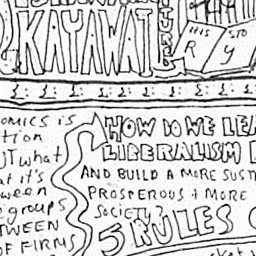 KAYAWAT
HIS STO
R Y
OMICS is
tion
UT what
at it's
ween
e groups
TWEEN
OF FIRMS
HOW DO WE LEA
LIBERALISM
AND BUILD A MORE SUST
PROSPEROUS + MORE
SOCIETY?
5 RULES